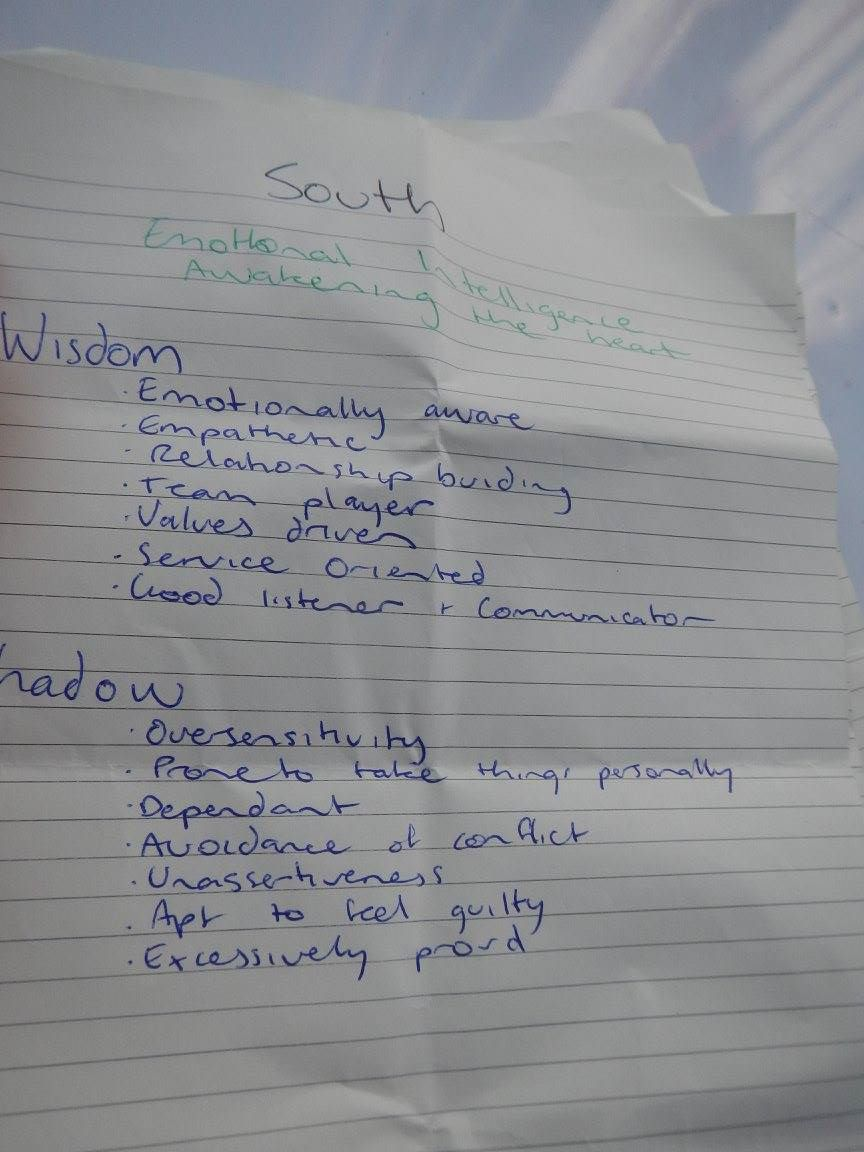 South
Emotional Intelligence
Awakening the heart
Wisdom
· Emotionally aware
· Empathetic
· Relationship buiding
· Team player
· Values driven
· Service Oriented
· Good listener + Communicator
hadow
· Oversensitivity
· Prone to take things personally
· Dependant
· Avoidance of conflict
· Unassertiveness
· Apt to feel guilty
· Excessively proud